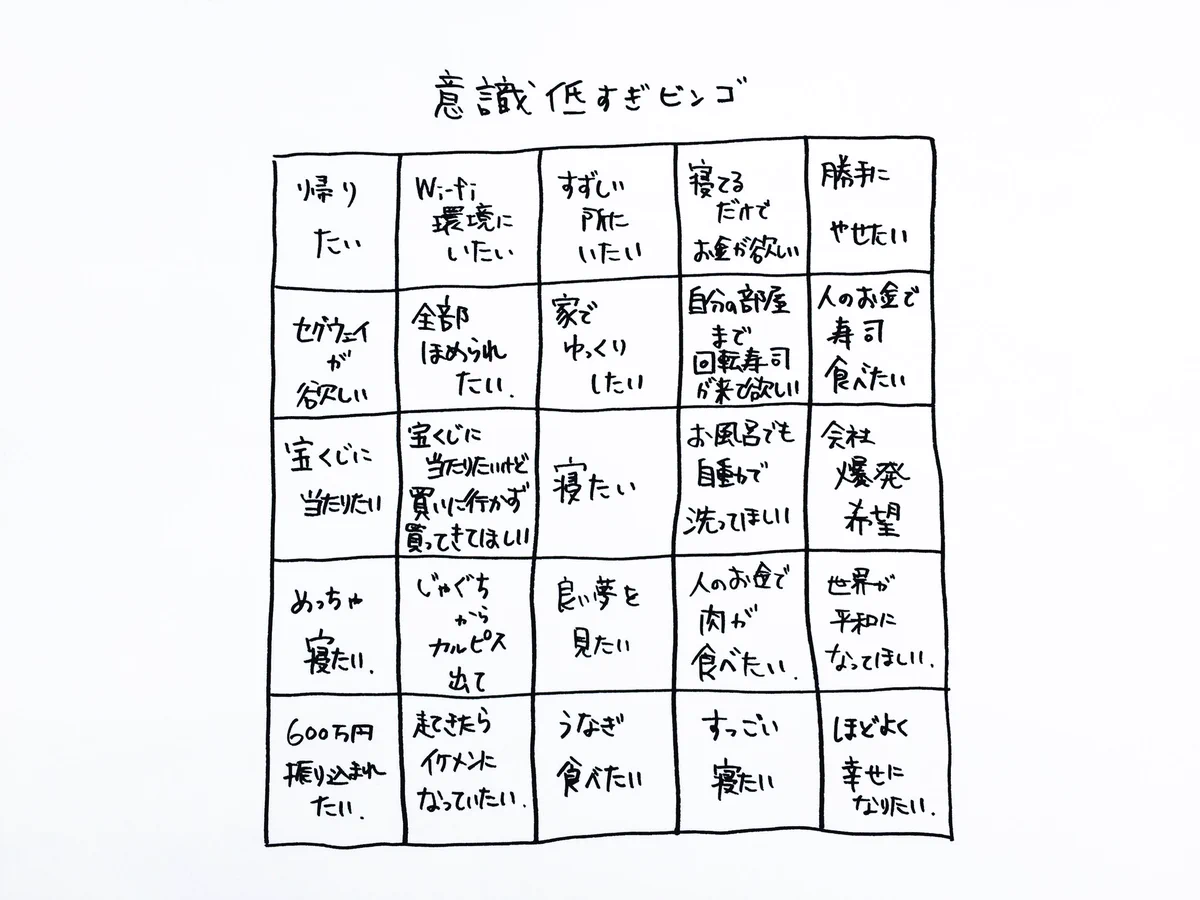 意識低すぎビンゴ
帰り
たい
Wi-fi
環境に
いたい
すずしい
所に
いたい
寝てる
だけで
お金が欲しい
勝手に
やせたい
セグウェイ
が
欲しい
全部
ほめられ
たい.
家で
ゆっくり
したい
自分の部屋
まで
回転寿司
が来て欲しい
人のお金で
寿司
食べたい
宝くじに
当たりたい
宝くじに
当たりたいけど
買いに行かず
買ってきてほしい
寝たい
お風呂でも
自動で
洗ってほしい
会社
爆発
希望
めっちゃ
寝たい.
じゃぐち
から
カルピス
出て
良い夢を
見たい
人のお金で
肉が
食べたい.
世界が
平和に
なってほしい.
600万円
振り込まれ
たい.
起きたら
イケメンに
なっていたい.
うなぎ
食べたい
すっごい
寝たい
ほどよく
幸せに
なりたい.